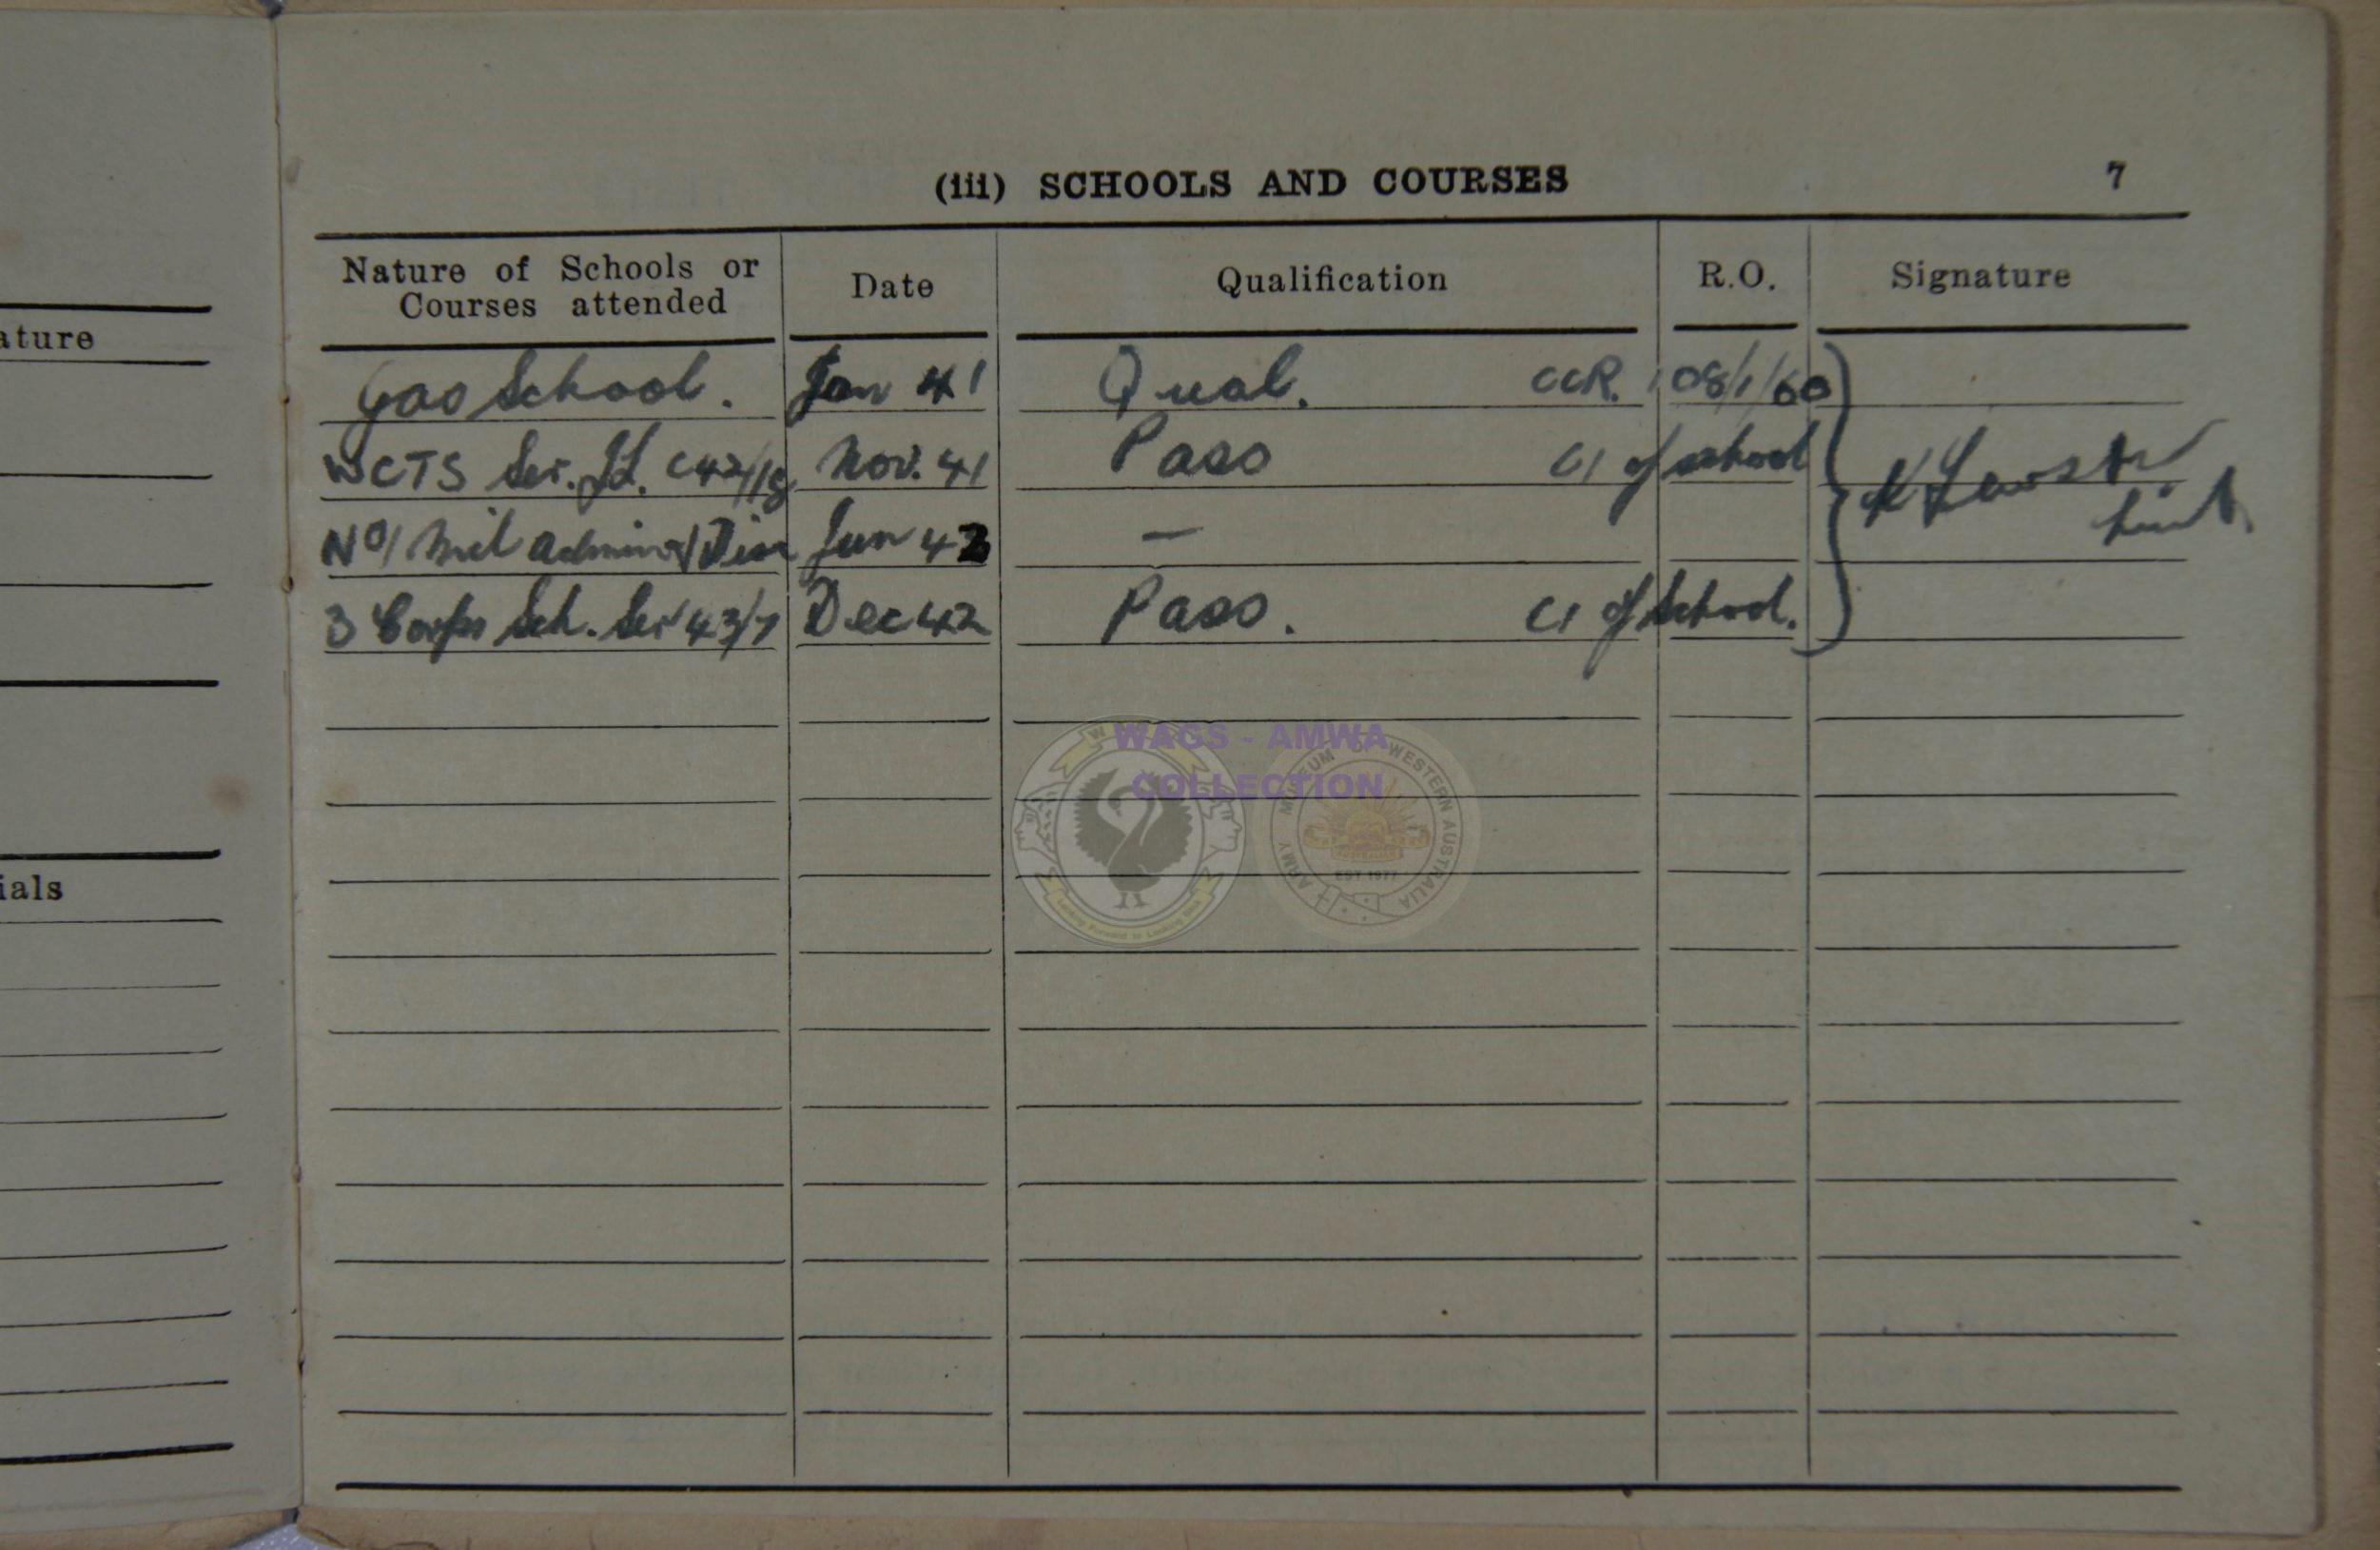 (iii) SCHOOLS AND COURSES 7
Nature of Schools or Courses attended Date Qualification R.O. Signature
Gas School. Jan 41 Qual. CCR. 108/1/60
WCTS Ser. C42/18 Nov. 41 Pass CI of school
No 1 Mil Admin Jun 42 —
3 Corps Sch. Ser 43/7 Dec 42 Pass. CI of School.
Lieut
ature
ials
WAGS - AMWA
COLLECTION
ARMY MUSEUM OF WESTERN AUSTRALIA
EST 1977
Looking Forward to Looking Back